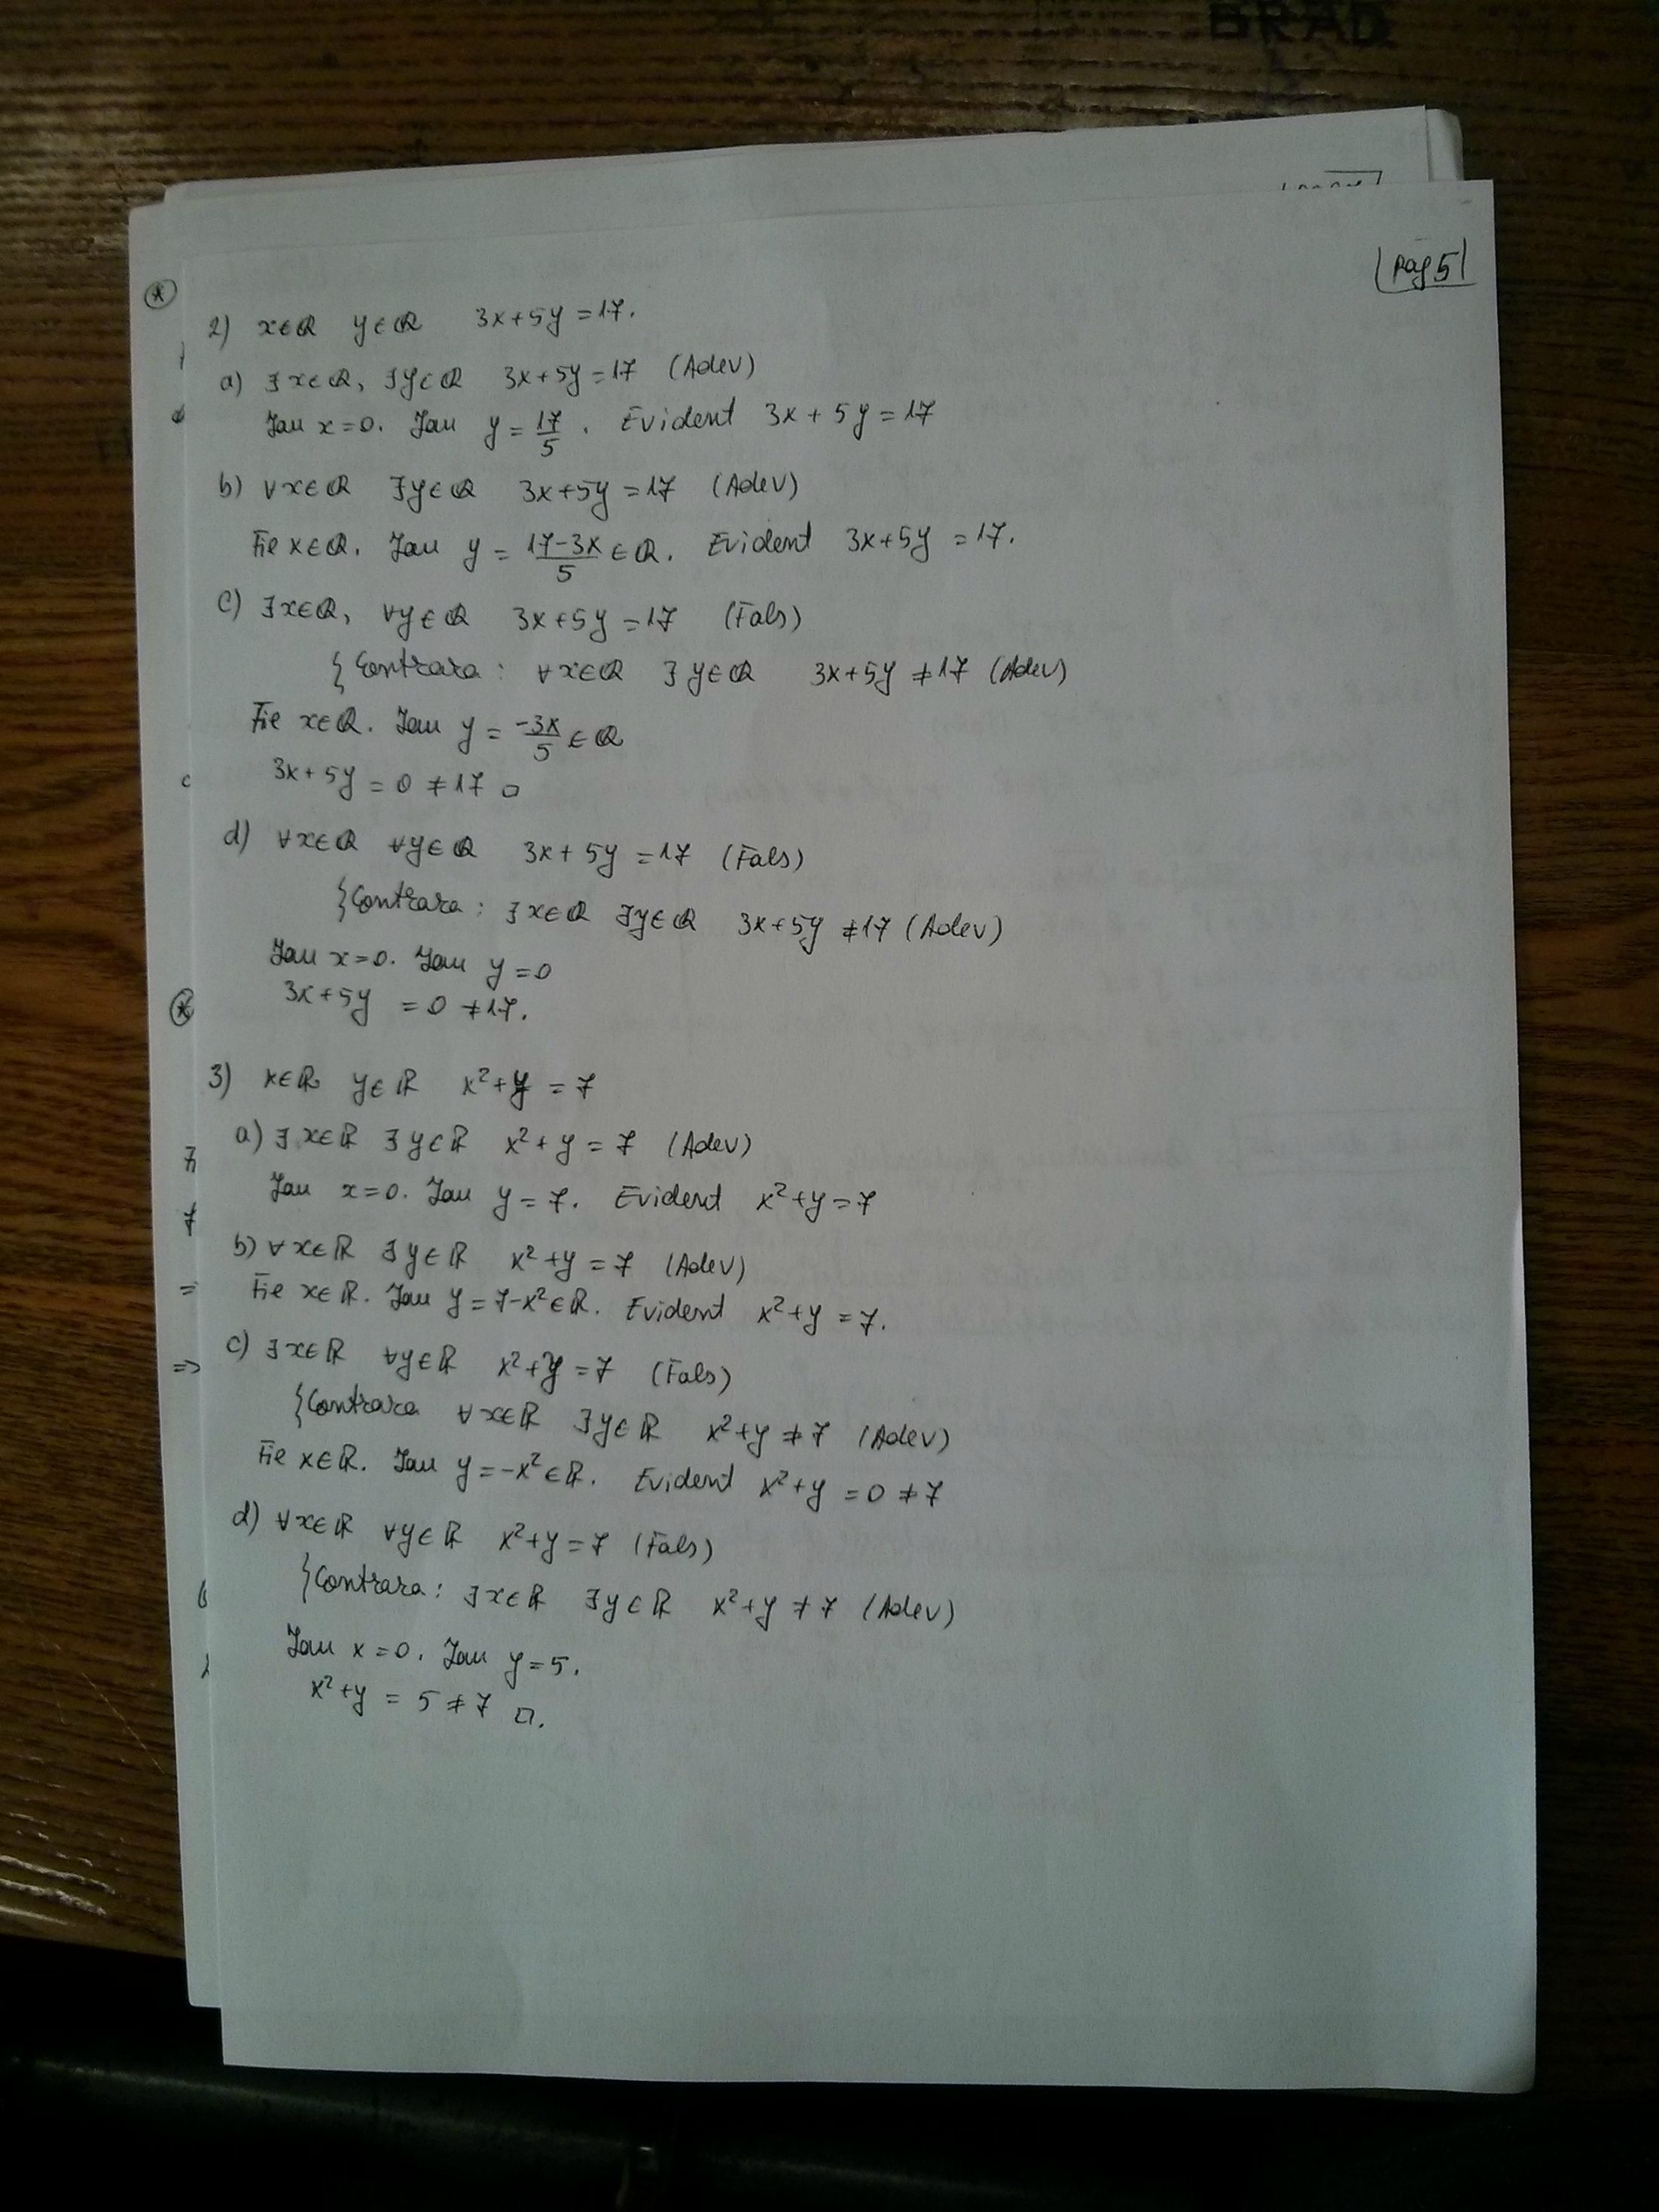 BRAD
pag 5
2) x∈Q y∈Q 3x+5y=17.
a) ∃x∈Q, ∃y∈Q 3x+5y=17 (Adev)
Iau x=0. Iau y = 17/5 . Evident 3x+5y=17
b) ∀x∈Q ∃y∈Q 3x+5y=17 (Adev)
Fie x∈Q. Iau y = (17-3x)/5 ∈ Q. Evident 3x+5y=17.
c) ∃x∈Q, ∀y∈Q 3x+5y=17 (Fals)
{Contrara: ∀x∈Q ∃y∈Q 3x+5y≠17 (Adev)
Fie x∈Q. Iau y = -3x/5 ∈ Q
3x+5y = 0 ≠ 17 □
d) ∀x∈Q ∀y∈Q 3x+5y=17 (Fals)
{Contrara: ∃x∈Q ∃y∈Q 3x+5y≠17 (Adev)
Iau x=0. Iau y=0
3x+5y = 0 ≠ 17.
3) x∈R y∈R x²+y = 7
a) ∃x∈R ∃y∈R x²+y = 7 (Adev)
Iau x=0. Iau y = 7. Evident x²+y=7
b) ∀x∈R ∃y∈R x²+y = 7 (Adev)
Fie x∈R. Iau y = 7-x²∈R. Evident x²+y = 7.
c) ∃x∈R ∀y∈R x²+y = 7 (Fals)
{Contrara ∀x∈R ∃y∈R x²+y≠7 (Adev)
Fie x∈R. Iau y=-x²∈R. Evident x²+y = 0 ≠ 7
d) ∀x∈R ∀y∈R x²+y=7 (Fals)
{Contrara: ∃x∈R ∃y∈R x²+y≠7 (Adev)
Iau x=0. Iau y=5.
x²+y = 5 ≠ 7 □.